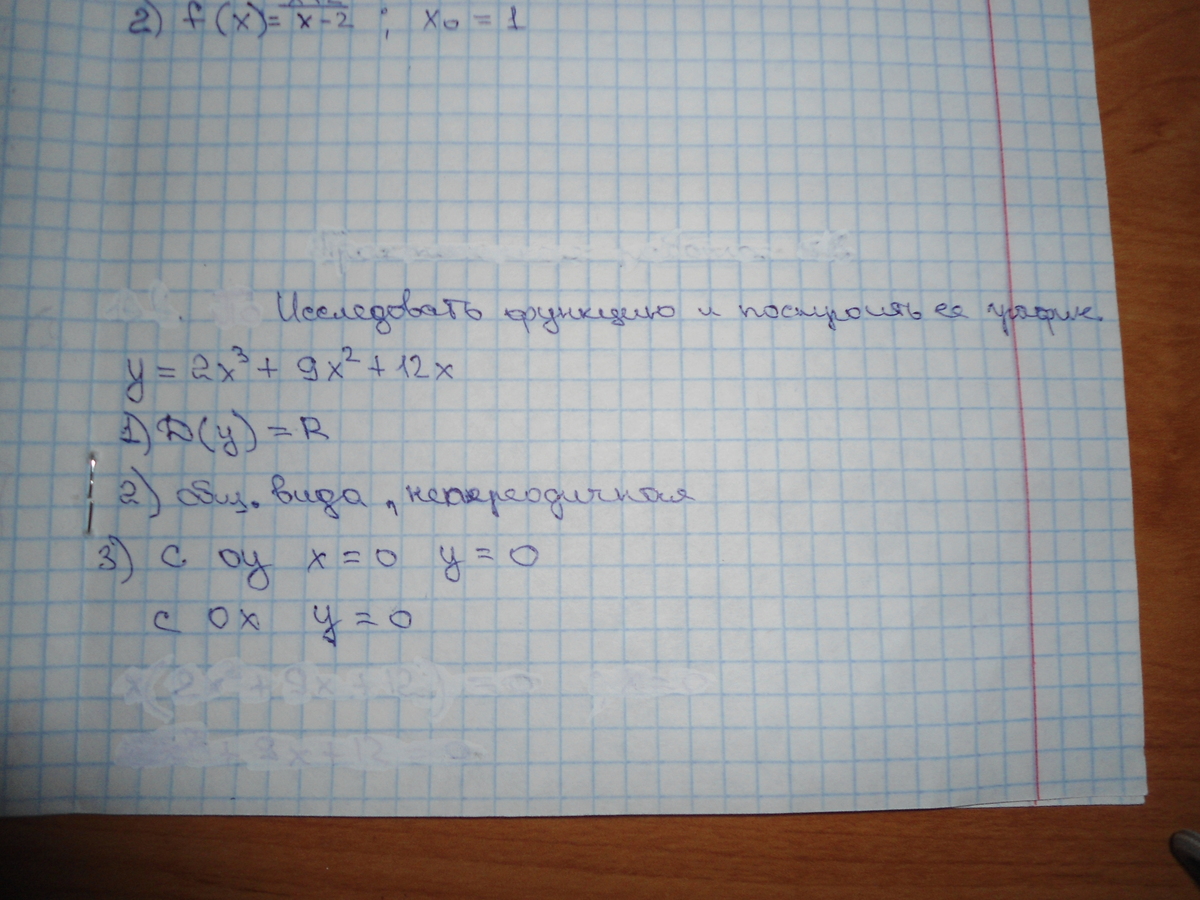 2) f(x)= x-2 ; x₀ = 1
Исследовать функцию и построить ее график.
y = 2x³ + 9x² + 12x
1) D(y) = R
2) общ. вида, непереодичная
3) с оу x = 0 y = 0
с ох y = 0
x(2x²+9x+12)=0 x=0
+9x+12=0